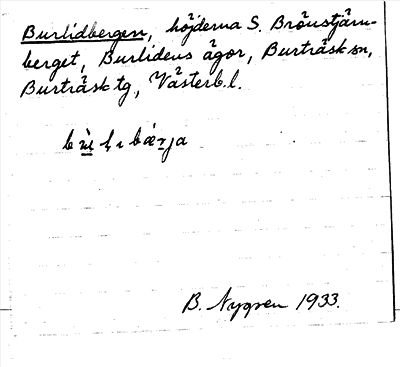 Burlidbergen, höjderna S. Brånstjärn-
berget, Burlidens ägor, Burträsk sn,
Burträsk tg, Västerb. l.
B. Nygren 1933.